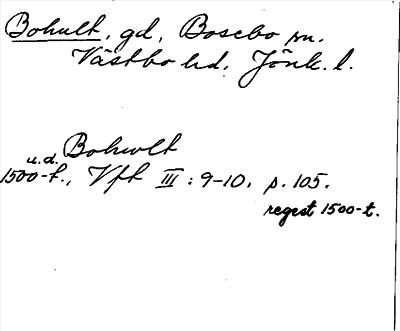 Bohult, gd, Bosebo sn.
Västbo hd, Jönk. l.
Bohwlt
u.d.
1500-t., Vfk III : 9-10, p. 105.
regest 1500-t.